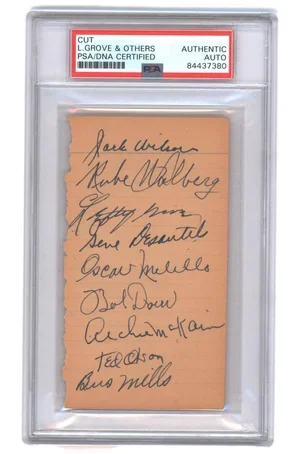 CUT
L.GROVE & OTHERS
PSA/DNA CERTIFIED
AUTHENTIC
AUTO
84437380
PSA
Jack Wilson
Rube Walberg
Lefty Grove
Gene Desautels
Oscar Melillo
Bob Doerr
Archie McKain
Ted Olson
Buss Mills